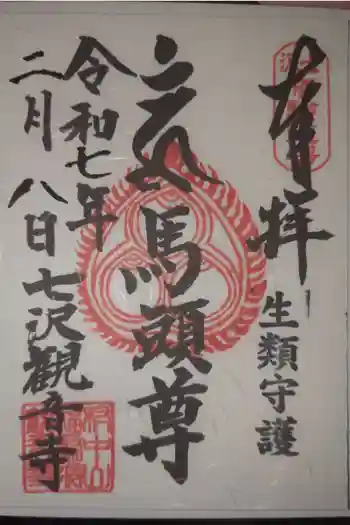 奉拝
生類守護
馬頭尊
令和七年
二月八日七沢観音寺